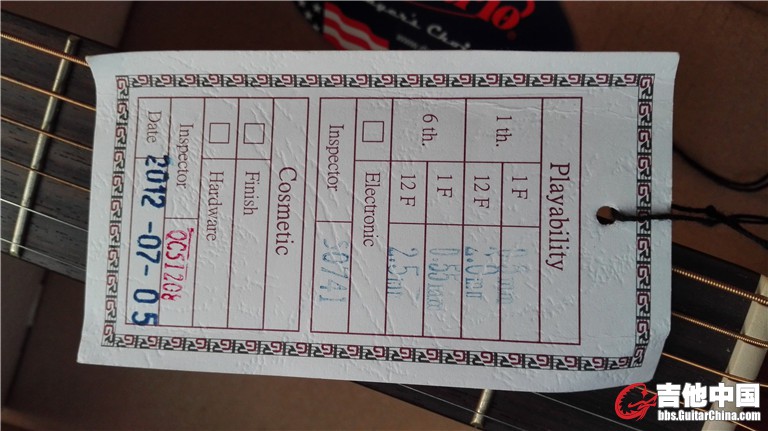 Playability
1 th. 1 F
12 F 2.0mm
6 th. 1 F 0.55mm
12 F 2.5mm
Electronic
Inspector S0741
Cosmetic
Finish
Hardware
Inspector QC51208
Date 2012-07-05
吉他中国
bbs.GuitarChina.com